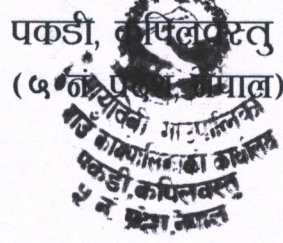 पकडी, कपिलवस्तु
(५ नं. प्रदेश, नेपाल)
मायादेवी गाउँपालिका
गाउँ कार्यपालिकाको कार्यालय
पकडी, कपिलवस्तु
५ नं. प्रदेश नेपाल